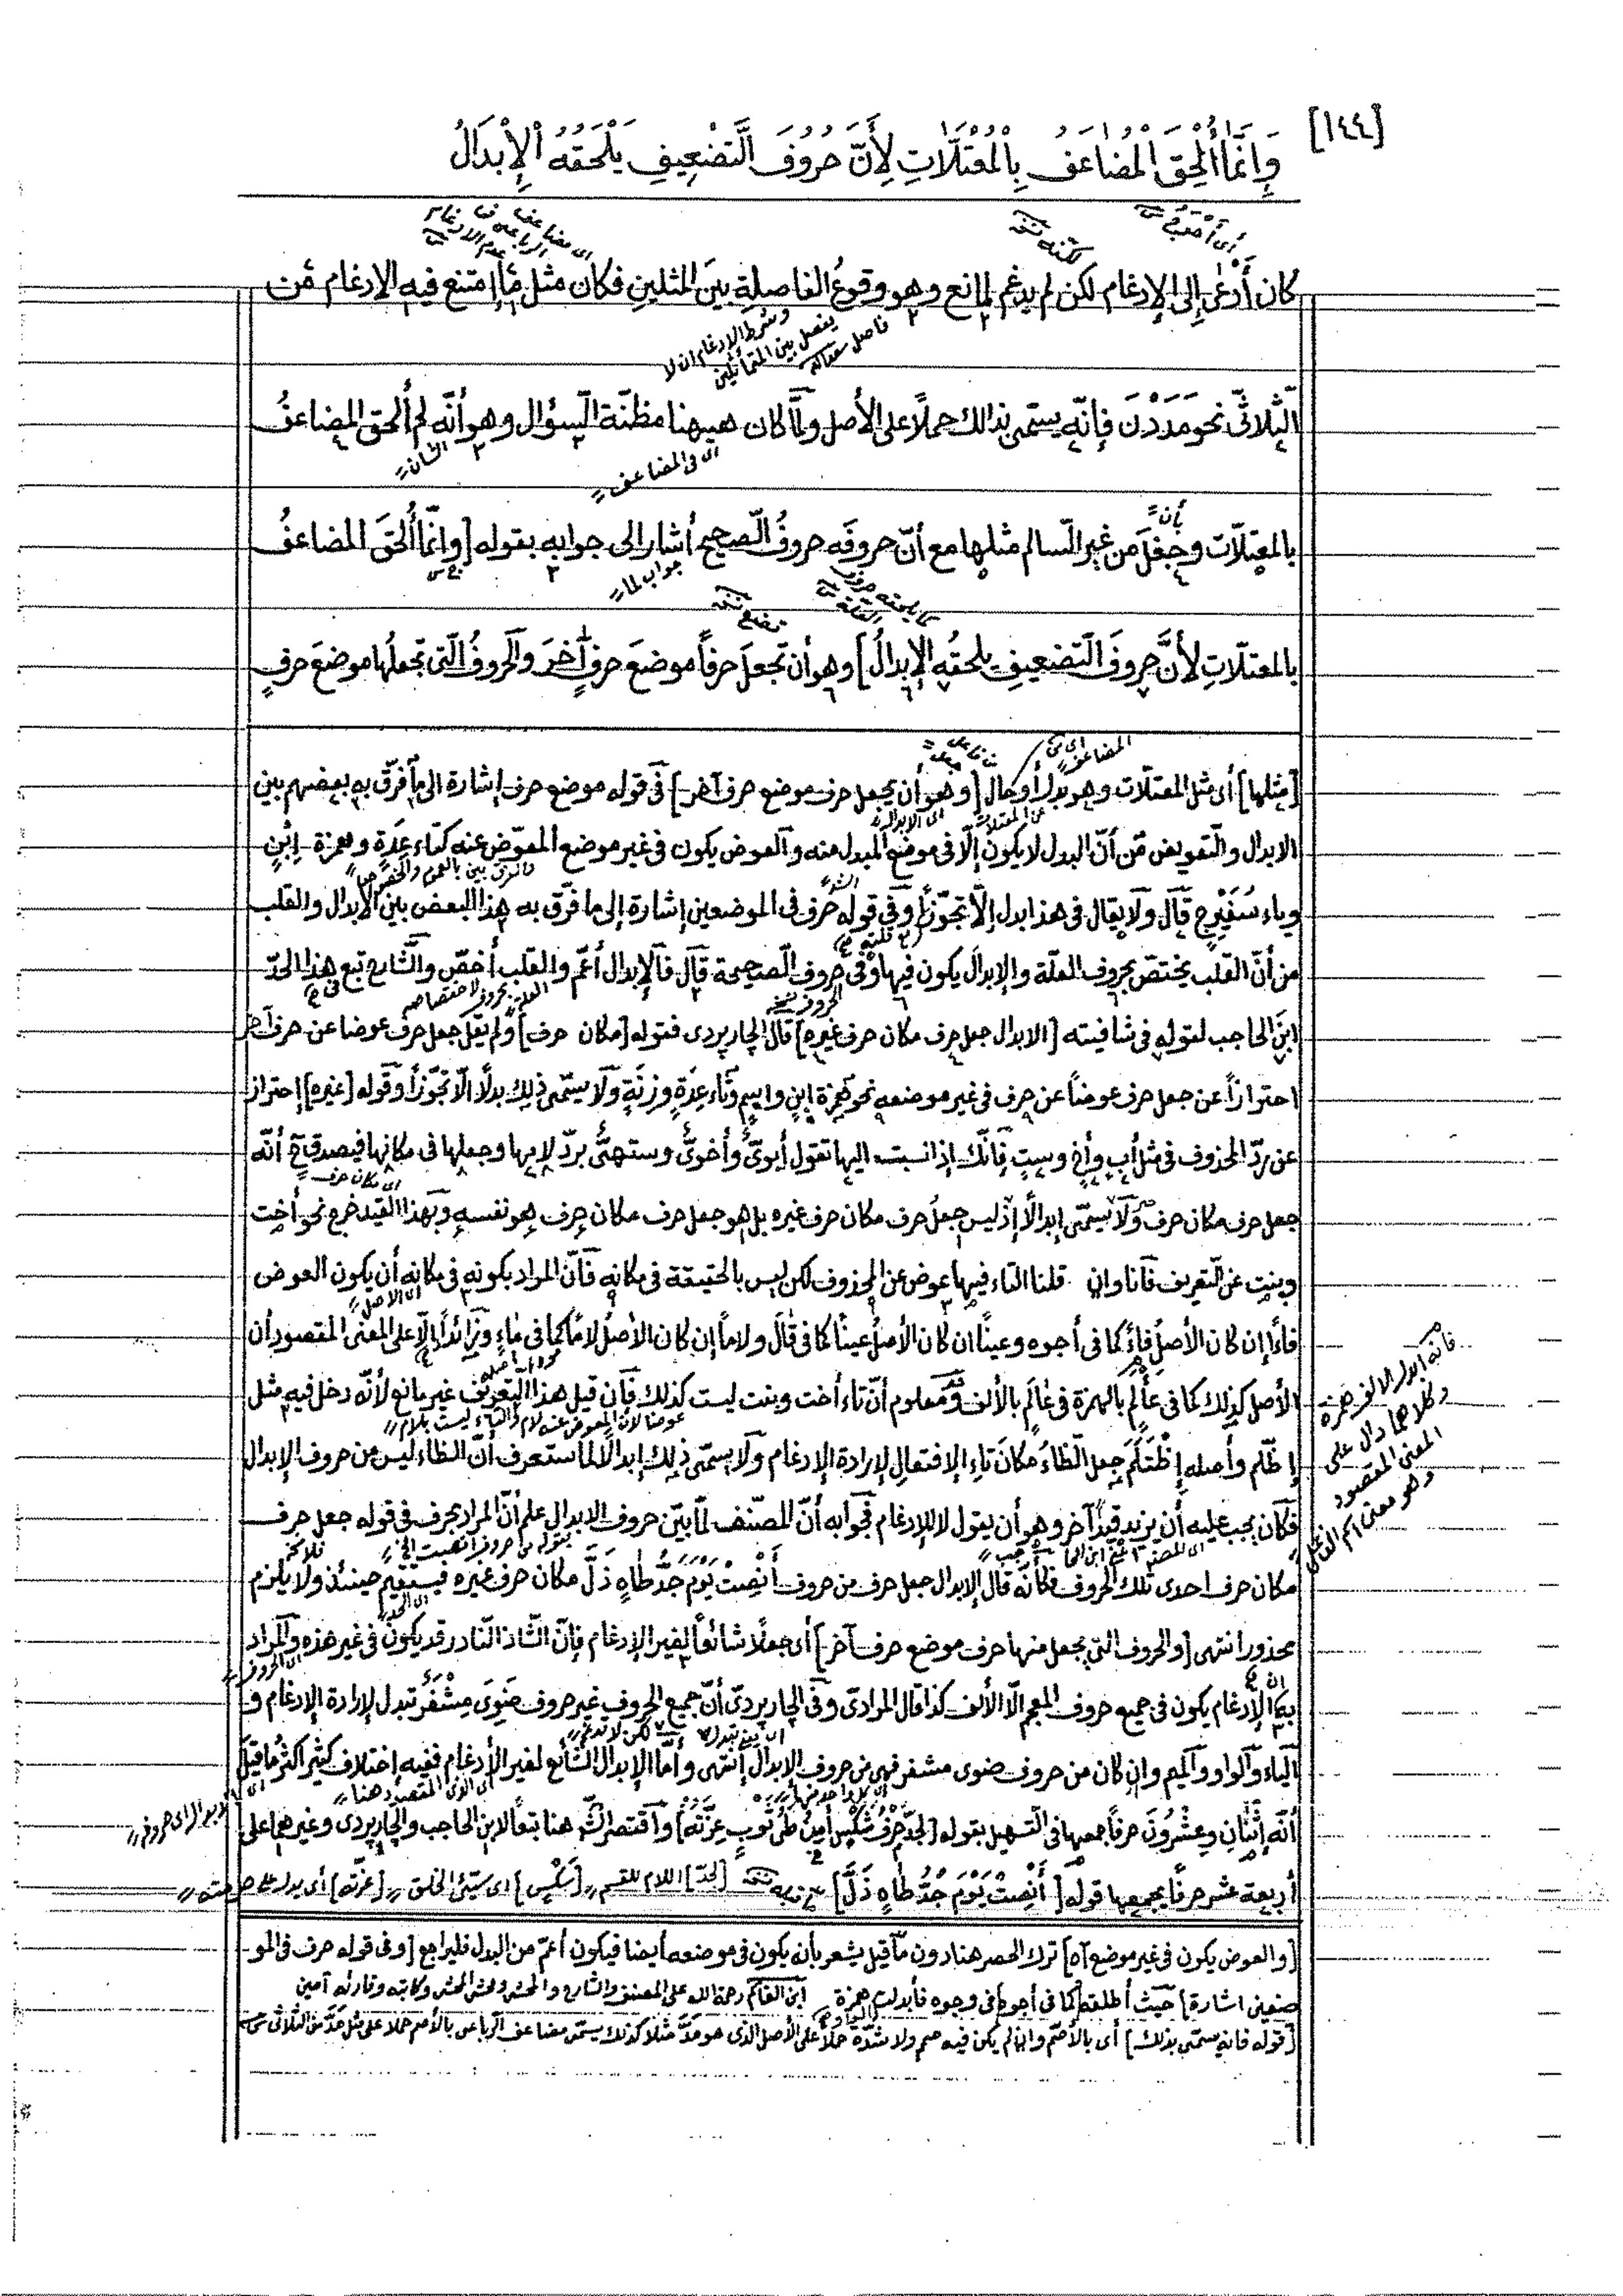 [١٤٤]
وَإِنَّمَا أُلْحِقَ الْمُضَاعَفُ بِالْمُعْتَلَّاتِ لِأَنَّ حُرُوفَ التَّضْعِيفِ يَلْحَقُهُ الْإِبْدَالُ
كان أَدْعٰى إلى الإدغام لكن لم يدغم لمانع وهو وقوعُ الفاصلةِ بينَ المثلينِ فكان مثل ما إمتنع فيه الإدغام من
وشرط الإدغام ان لا
يفصل بين المتماثلين
فاصل
الثلاثىّ نحو مَدَدْنَ فإنّه يسمّى بذالك حملاً على الأصل ولمّا كان هيهنا مظنّة السّؤال وهو أنّه لِم أُلحق المضاعفُ
اى فى المضاعف
الشان
بأن
بالمعتلّات وجعل من غير السّالم مثلها مع أنّ حروفَه حروفُ الصّحيح أشار الى جوابه بقوله [وإنّما أُلحقَ المضاعفُ
جواب لما
بالمعتلّاتِ لأنَّ حروفَ التّضعيفِ يلحقُه الإبدالُ] وهو أن تجعلَ حرفاً موضعَ حرفٍ آخرَ والحروفُ الّتى تجعلُها موضعَ حرفٍ
[مثلها] أى مثل المعتلّات وهو بدل أو حال [وهو أن يجعل حرف موضع حرف آخر] فى قوله موضع حرف إشارة الى ما فرّق به بعضهم بين
الابدال والتّعويض من أنّ البدل لا يكون إلّا فى موضع المبدل منه والعوض يكون فى غير موضع المعوّض عنه كتاء عِدَة وهمزة إبْنٍ
وياء سُفَيْرِج قال ولا يقال فى هذا بدل إلّا تجوّزاً وفى قوله حرف فى الموضعين إشارة إلى ما فرّق به هذا البعض بين الابدال والقلب
من أنّ القلب يختصّ بحروف العلّة والإبدال يكون فيها وفى حروف الصّحيحة قال فالإبدال أعمّ والقلب أخصّ والشّارح تبع فى هذا الحدّ
ابنَ الحاجب لقوله فى شافيته [الابدال جعل حرف مكان حرف غيره] قال الجاربردى فقوله [مكان حرف] ولم يقل جعل حرف عوضا عن حرف آخر
احترازاً عن جعل حرف عوضاً عن حرف فى غير موضعه نحو همزة ابنٍ واسمٍ وتاء عِدَةٍ وزِنَةٍ ولا يسمّى ذلك بدلًا الّا تجوّزاً وقوله [غيره] إحتراز
عن ردّ المحذوف فى مثل أبٍ وأخٍ وستٍ فإنّك إذا نسبت اليها تقول أبوىّ وأخوىّ وستهىّ بردّ لامها وجعلها فى مكانها فيصدق ح أنّه
جعل حرف مكان حرف ولا يسمّى إبدالًا إذ ليس جعلُ حرف مكان حرف غيره بل هو جعل حرف مكان حرف هو نفسه وبهذا القيد خرج نحو أخت
وبنت عن التّعريف فانا وان قلنا التاء فيها عوض عن المحذوف لكن ليس بالحقيقة فى مكانه فإنّ المراد بكونه فى مكانه أن يكون العوض
فاءً إن كان الأصلُ فاءً كما فى أجوه وعيناً ان كان الأصلُ عيناً كما فى قالَ ولاماً إن كان الأصلُ لاماً كما فى ماءٍ وزائداً دالّاً على المعنى المقصود أن
الأصل كذلك كما فى عألم بالهمزة فى عالم بالألف ومعلوم أنّ تاء أخت وبنت ليست كذلك فإن قيل هذا التعريف غير مانع لأنّه دخل فيه مثل
إظّلم وأصله إظْتَلَمَ جعل الظّاءُ مكانَ تاءِ الإفتعالِ لإرادة الإدغام ولا يسمّى ذلك إبدالًا لما ستعرف أنّ الظاء ليس من حروف الإبدال
فكان يجب عليه أن يزيد قيداً آخر وهو أن يقول لا للإدغام فجوابه أنّ المصنّف لمّا بيّن حروف الابدال علم أنّ المراد بحرف فى قوله جعل حرف
مكان حرف احدى تلك الحروف فكأنّه قال الإبدال جعل حرف من حروف أنْصِتْ يَوْمَ جَدُّ طَاهٍ ذَلَّ مكان حرف غيره فيستقيم حينئذ ولا يلزم
محذور انتهى [والحروف التى يجعل منها حرف موضع حرف آخر] أى جعلًا شائعاً لغير الإدغام فإنّ الشّاذ النّادر قد يكون فى غير هذه والمراد
الإدغام يكون فى جميع حروف المعجم الّا الألف كذا قال المرادىّ وفى الجاربردىّ أنّ جميع الحروف غير حروف ضَوِىَ مِشْفَر تبدل لإرادة الإدغام و
الياء والواو والميم وان كان من حروف ضوى مشفر فهى من حروف الإبدال إنتهى وأمّا الإبدال الشّائع لغير الإدغام ففيه إختلاف كثير أكثر ما قيلَ
أنّه إثْنانِ وعشرونَ حرفاً جمعها فى التّسهيل بقوله [لجدّ صُرِفَ شَكِسٌ أمِنٌ طَىَّ ثَوْبِ عِزَّتِهِ] واقتصر الشّ هنا تبعًا لابن الحاجب والجاربردى وغيرهما على
أربعة عشر حرفًا يجمعها قوله [أَنْصِتْ يَوْمَ جَدُّ طَاهٍ ذَلَّ] [لجدّ] اللام للقسم [شكس] اى سيّئ الخلق [عزّته] أى
فانّه ابدل الالف همزة
وكلاهما دال على
المعنى المقصود
وهو معنى اسم الفاعل
[والعوض يكون فى غير موضع آه] ترك الحصر هنا دون ما قيل يشعر بأنه يكون فى موضعه أيضا فيكون أعمّ من البدل فليراجع [وفى قوله حرف فى المو
ضعين اشارة] حيث أطلقه [كما فى أجوه] فى وجوه فأبدلت همزة ابن القاسم رحمة الله على المصنف والشارح والمحشى ومحشى المحشى وكاتبه وقارئه آمين
[قوله فانه يسمّى بذلك] أى بالأصمّ وان لم يكن فيه صمم ولا شدّة حملًا على الأصل الذى هو مَدَّ مثلا كذلك يسمّى مضاعف الرّباعى بالأصم حملا على مثل مَدَّ من الثلاثى